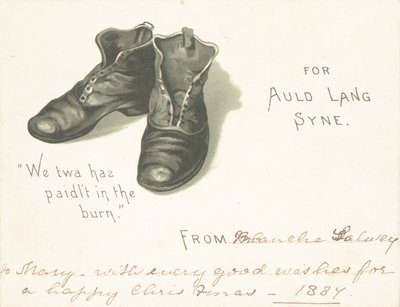 FOR
AULD LANG
SYNE.
"We twa hae
paidl't in the
burn."
FROM Blanche Salwey
To Mary - with every good wishes for
a happy Christmas - 1887.